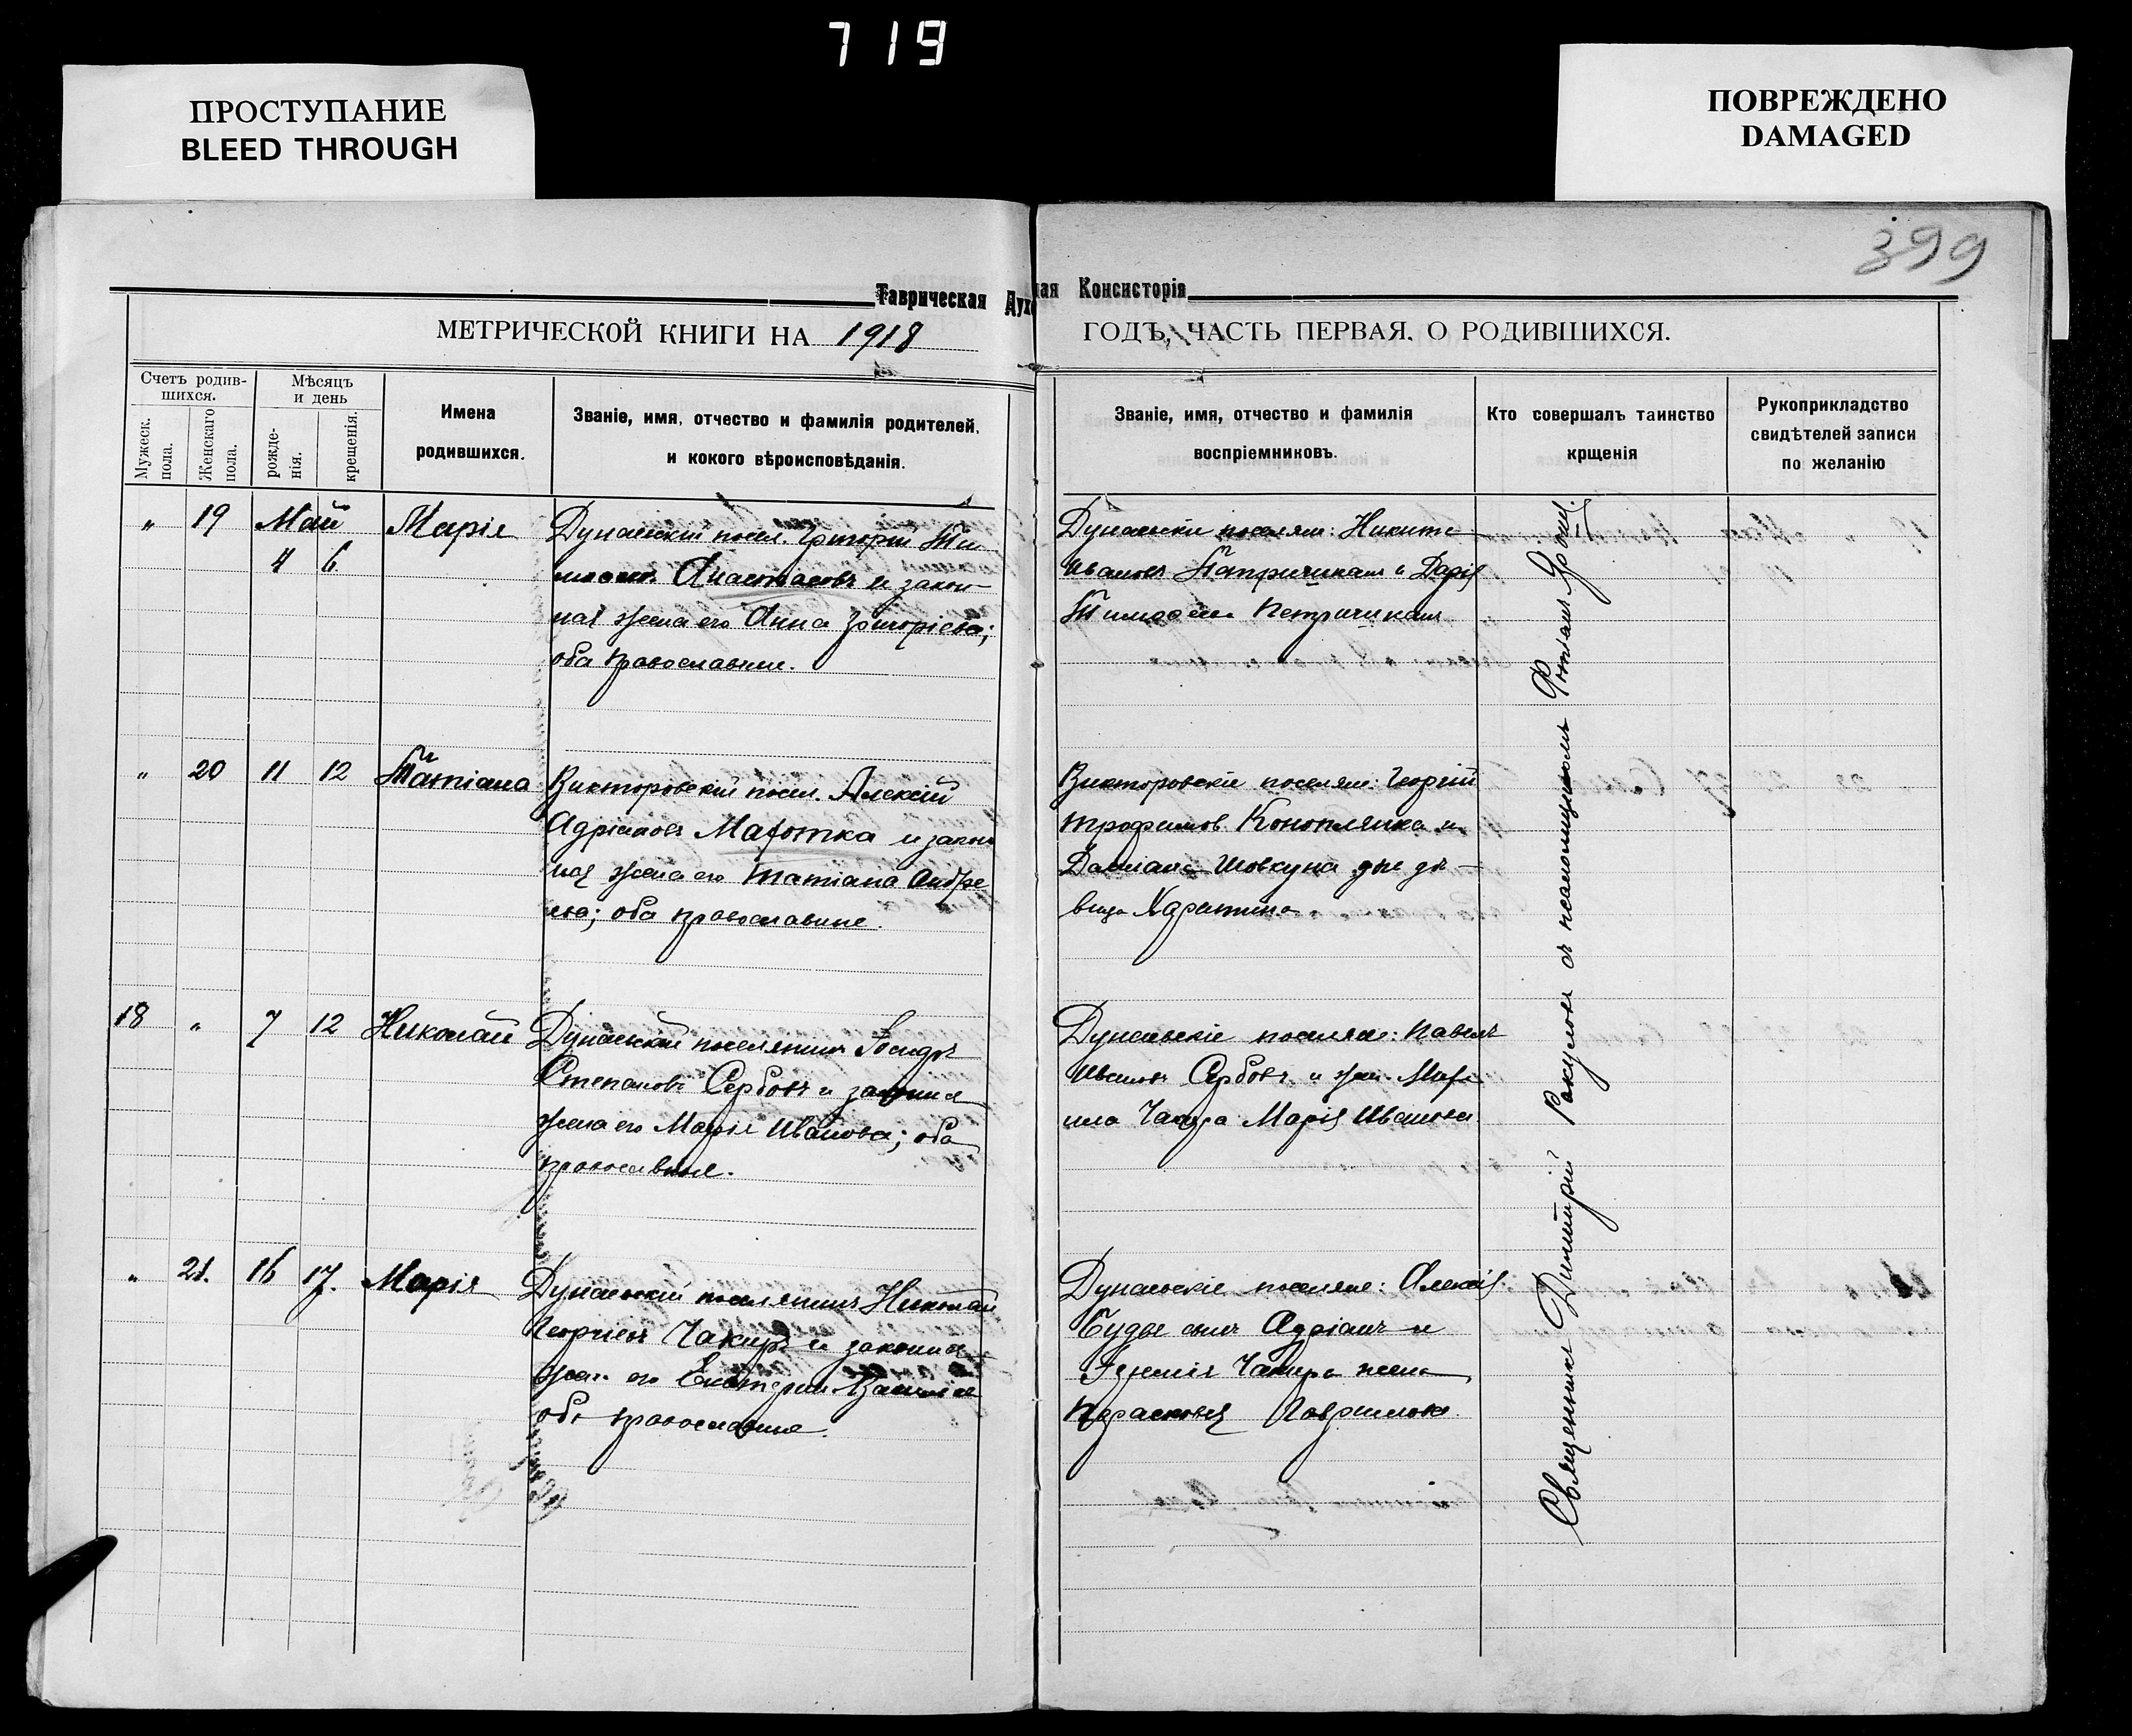 719
ПРОСТУПАНИЕ
BLEED THROUGH
ПОВРЕЖДЕНО
DAMAGED
399
Таврическая Духовная Консисторія
МЕТРИЧЕСКОЙ КНИГИ НА 1918 ГОДЪ, ЧАСТЬ ПЕРВАЯ. О РОДИВШИХСЯ.
Счетъ родив-
шихся.
Мужеск.
пола.
Женскаго
пола.
Мѣсяцъ
и день
рожде-
нія.
крещенія.
Имена
родившихся.
Званіе, имя, отчество и фамилія родителей,
и кокого вѣроисповѣданія.
Званіе, имя, отчество и фамилія
воспріемниковъ.
Кто совершалъ таинство
крщенія
Рукоприкладство
свидѣтелей записи
по желанію
" 19 Май
4 6
Марія
Дунаевскій посел. Григорій Ти
Анастасовъ и закон
ная жена его Анна Григоріева;
оба православные.
Дунаевскіе поселяне: Никита
Ивановъ и Дарія
" 20 11 12 Татіана
Викторовскій посел. Алексій
Адріановъ и закон
ная жена его Татіана Андре
ева; оба православные.
Викторовскіе поселяне: Георгій
Трофимов Коноплянка и
Шовкуна дѣ
вица
18 " 7 12 Николай
Дунаевскій поселянинъ
Степановъ Сербовъ и законная
жена его Марія Иванова; оба
православные.
Дунаевскіе поселяне: Павелъ
Ивановъ Сербовъ и
Чакира Марія Иванова
" 21. 16 17. Марія
Дунаевскій поселянинъ Николай
Георгіевъ Чакиръ и законная
жена его Екатерина
оба православные.
Дунаевскіе поселяне: Алексій
сынъ Адріанъ и
Чакира жена
Параскева Гаврилова
Священникъ Димитрій Ракуловъ съ псаломщикомъ